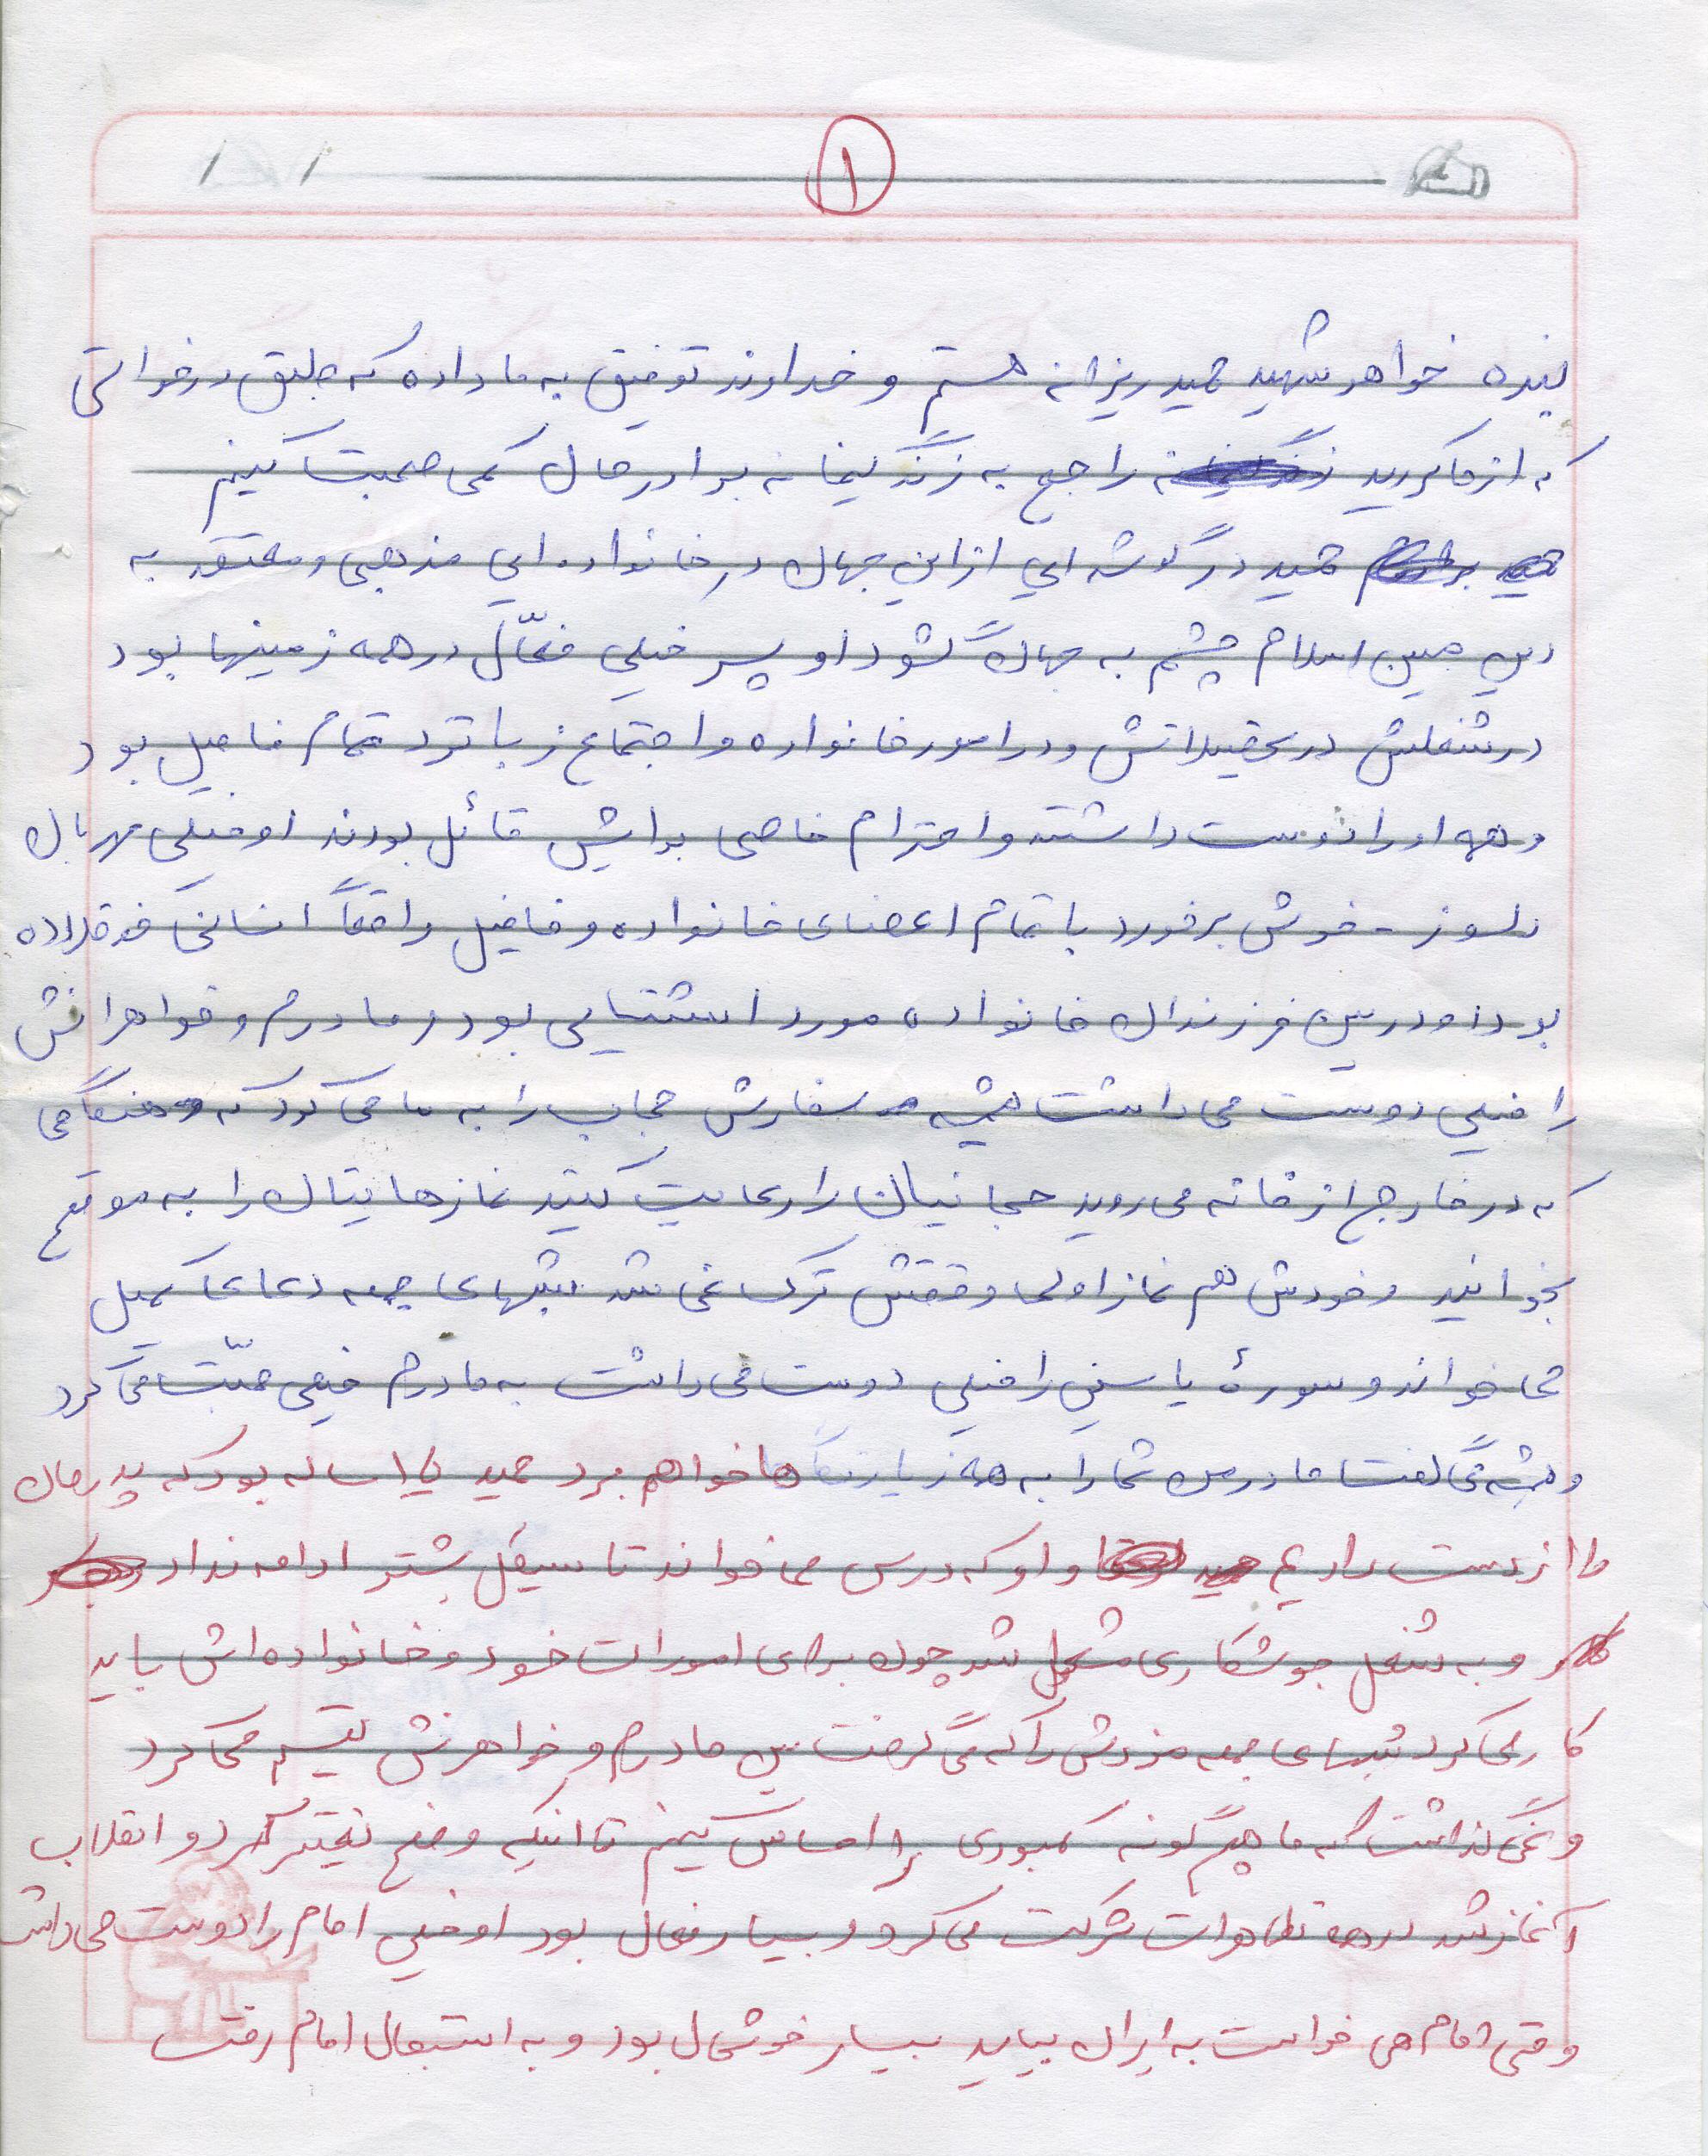 ۱
بنده خواهر شهید حمید ریزانه هستم و خداوند توفیق به ما داده که طبق درخواتی
که از ما کردید راجع به زندگینامه برادرمان کمی صحبت کنیم
حمید در گوشه ایی از این جهان در خانواده ایی مذهبی و معتقد به
دین مبین اسلام چشم به جهان گشود او پسر خیلی فعّال در همه زمینها بود
در شغلش در تحصیلاتش و در امور خانواده و اجتماع زبانزد تمام فامیل بود
و همه او را دوست داشتند و احترام خاصی برایش قائل بودند او خیلی مهربان
دلسوز - خوش برخورد با تمام اعضای خانواده و فامیل واقعاً انسانی فوقلاده
بود او در بین فرزندان خانواده مورد استثنایی بود و مادرم و خواهرانش
را خیلی دوست می داشت همیشه سفارش حجاب را به ما می کرد که هنگامی
که در خارج از خانه می روید حجابتان را رعایت کنید نمازهایتان را به موقع
بخوانید و خودش هم نماز اول وقتش ترک نمی شد شبهای جمعه دعای کمیل
می خواند و سورهٔ یاسین را خیلی دوست می داشت به مادرم خیلی محبّت می کرد
و همیشه می گفت مادر من شما را به همه زیارتگاهها خواهم برد حمید ۱۷ ساله بود که پدرمان
را از دست دادیم و او که درس می خواند تا سیکل بیشتر ادامه نداد
و به شغل جوشکاری مشغول شد چون برای امورات خود و خانواده اش باید
کار می کرد شبهای جمعه مزدش را که می گرفت بین مادرم و خواهرنش تقسیم می کرد
و نمی گذاشت که ما هیچ گونه کمبودی را احساس کنیم تا اینکه وضع تغییر کرد و انقلاب
آغاز شد در همه تظاهرات شرکت می کرد و بسیار فعال بود او خیلی امام را دوست می داشت
وقتی امام می خواست به ایران بیاید بسیار خوشحال بود و به استقبال امام رفت